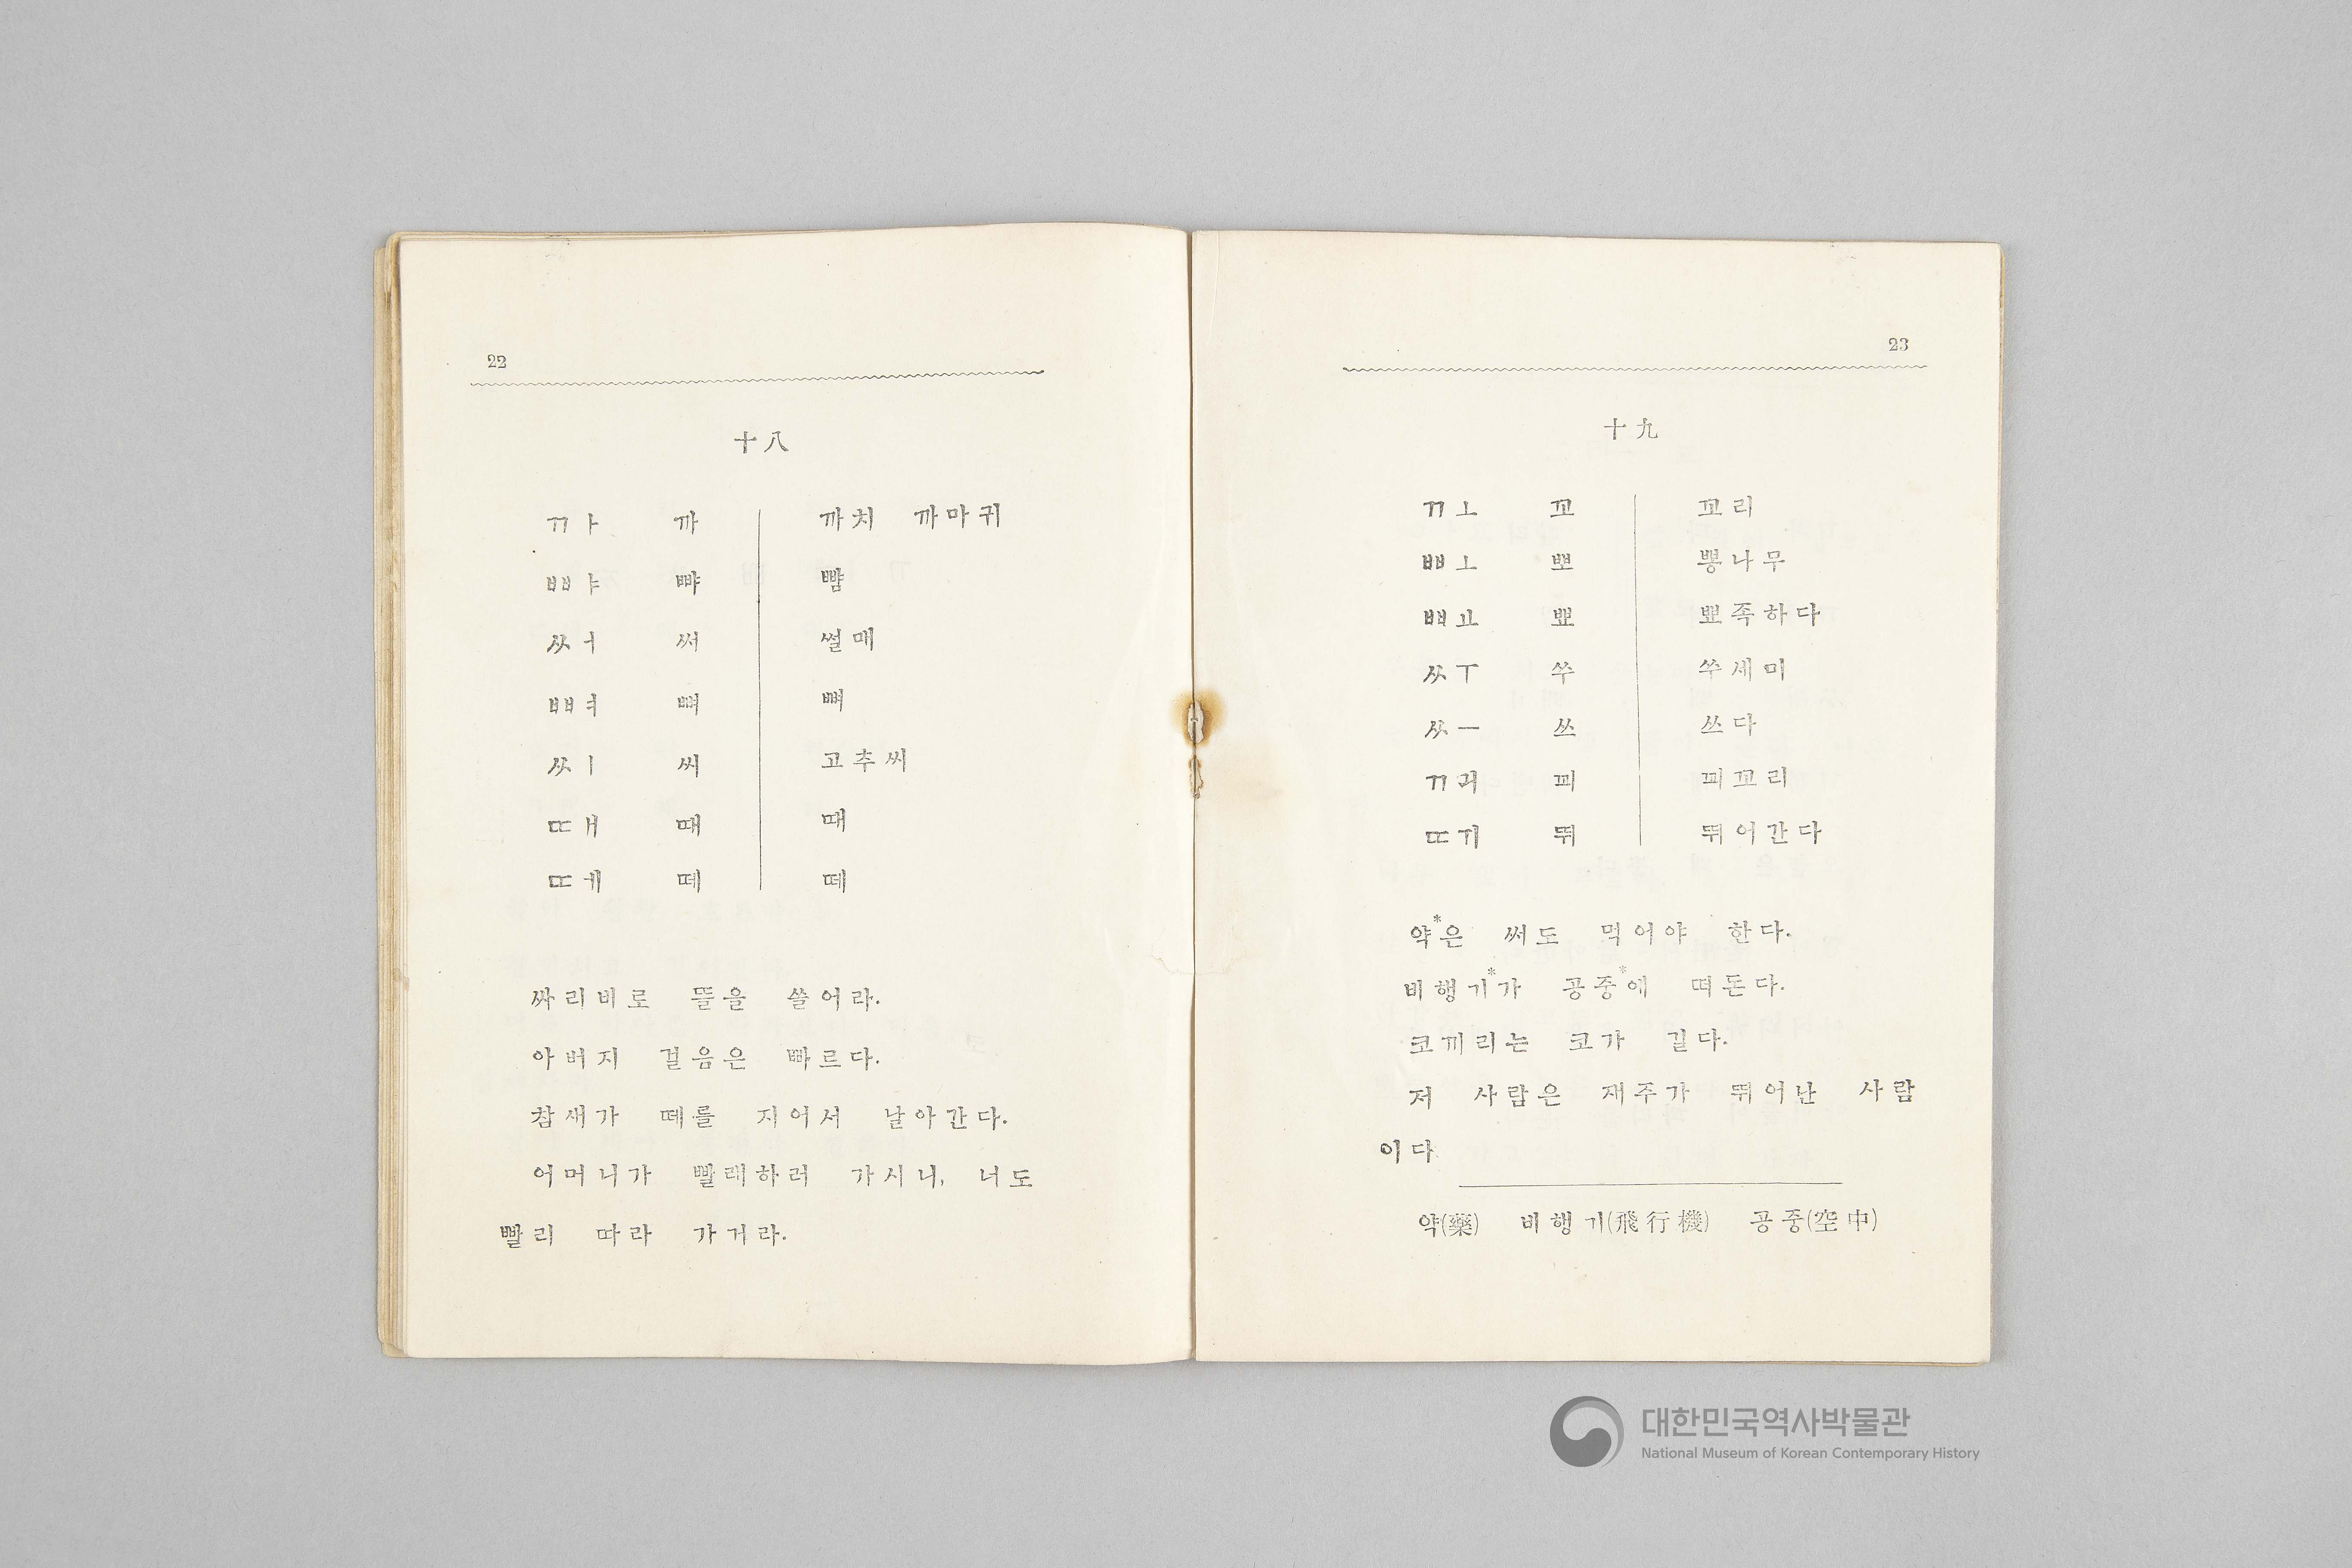 22
十八
ㄲㅏ 까 까치 까마귀
ㅃㅑ 뺘 뺨
ㅆㅓ 써 썰매
ㅃㅕ 뼈 뼈
ㅆㅣ 씨 고추씨
ㄸㅐ 때 때
ㄸㅔ 떼 떼
싸리비로 뜰을 쓸어라.
아버지 걸음은 빠르다.
참새가 떼를 지어서 날아간다.
어머니가 빨래하러 가시니, 너도
빨리 따라 가거라.
23
十九
ㄲㅗ 꼬 꼬리
ㅃㅗ 뽀 뽕나무
ㅃㅛ 뾰 뾰족하다
ㅆㅜ 쑤 쑤세미
ㅆㅡ 쓰 쓰다
ㄲㅚ 꾀 꾀꼬리
ㄸㅟ 뛰 뛰어간다
약*은 써도 먹어야 한다.
비행기*가 공중*에 떠돈다.
코끼리는 코가 길다.
저 사람은 재주가 뛰어난 사람
이다
약(藥) 비행기(飛行機) 공중(空中)
대한민국역사박물관
National Museum of Korean Contemporary History